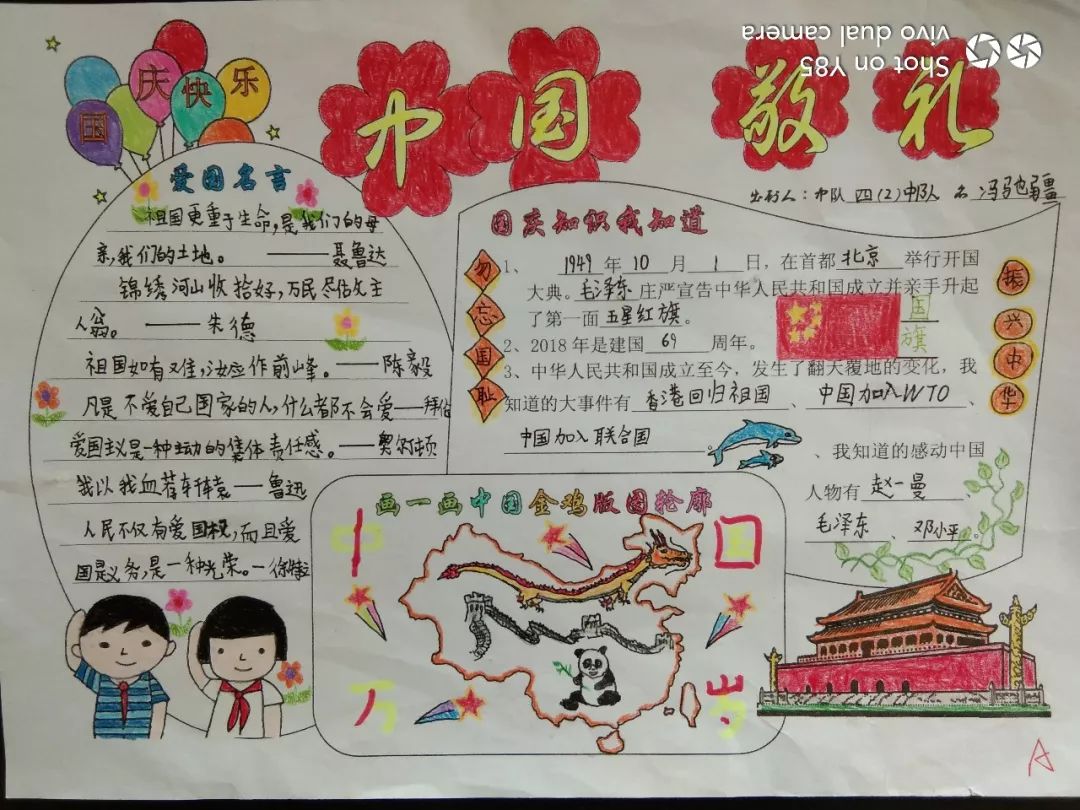 国庆快乐
中国 敬礼
Shot on Y85
vivo dual camera
出刊人：中队 四(2)中队 名
爱国名言
祖国更重于生命,是我们的母
亲,我们的土地。——聂鲁达
锦绣河山收拾好,万民尽估父主
人翁。——朱德
祖国如有难,汝应作前峰。——陈毅
凡是不爱自己国家的人,什么都不会爱——拜伦
爱国主义是一种主动的集体责任感。——奥尔顿
我以我血荐轩辕——鲁迅
人民不仅有爱国权,而且爱
国是义务,是一种光荣。—徐特立
国庆知识我知道
勿忘国耻
1、 1949 年 10 月 1 日，在首都 北京 举行开国
大典。毛泽东 庄严宣告中华人民共和国成立并亲手升起
了第一面 五星红旗 。
2、2018年是建国 69 周年。
国旗
3、中华人民共和国成立至今，发生了翻天覆地的变化，我
知道的大事件有 香港回归祖国 、 中国加入WTO 、
中国加入联合国 、我知道的感动中国
人物有 赵一曼 、
毛泽东 、 邓小平 。
振兴中华
画一画中国金鸡版图轮廓
中国
万岁
A